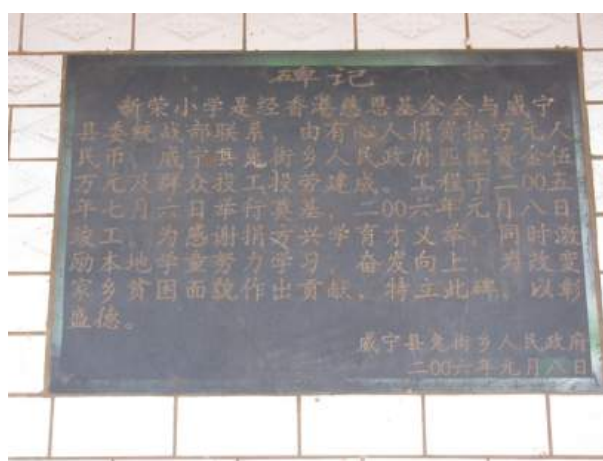 碑记
新荣小学是经香港慈恩基金会与威宁
县委统战部联系，由有心人捐资拾万元人
民币，威宁县兔街乡人民政府匹配资金伍
万元及群众投工投劳建成。工程于二00五
年七月六日举行奠基，二00六年元月八日
竣工，为感谢捐方兴学育才义举，同时激
励本地学童努力学习，奋发向上，为改变
家乡贫困面貌作出贡献，特立此碑，以彰
盛德。
威宁县兔街乡人民政府
二00六年元月八日